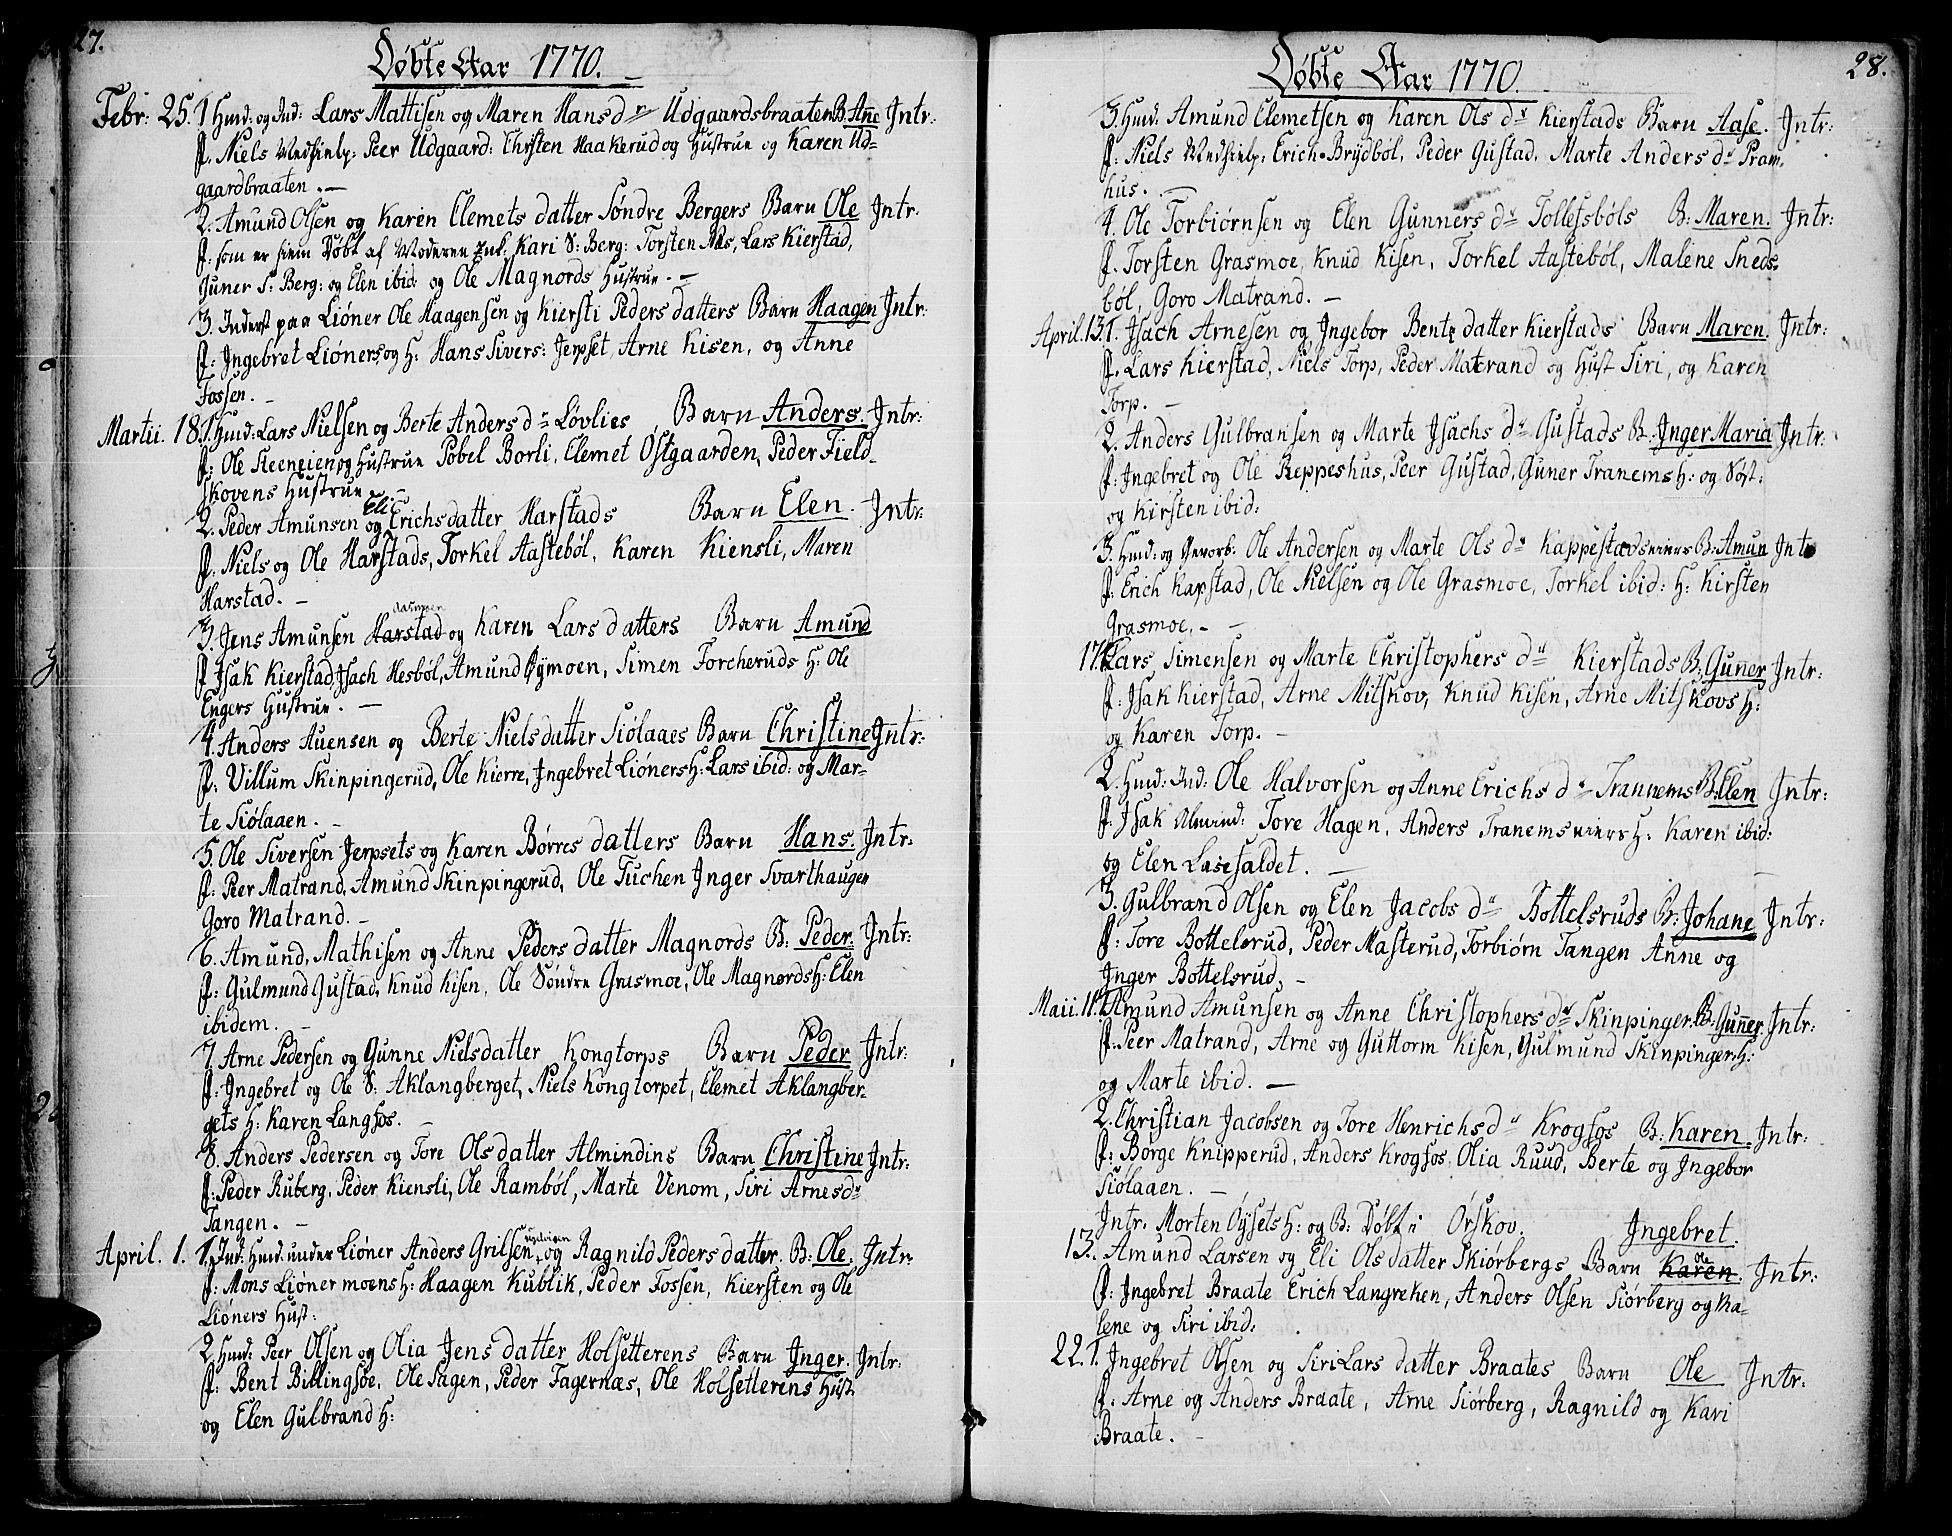 27.
Døbte Aar 1770.
Febr: 25. 1 Huud: og Ind: Lars Mattisen og Maren Hans dr Udgaardsbraaten B. Añe Intr:
f. Niels Medhielp: Peer Udgaard: Christen Haakerud og Hustrue og Karen Ud-
gaardbraaten. —
2. Amund Olsen og Karen Clemets datter Søndre Bergers Barn Ole Intr.
f. som er hiem døbt af Moderen Enk. Kari S: Berg: Torsten Næs, Lars Kierstad,
Guner S: Berg: og Elen ibid: og Ole Magnords Hustrue. —
3. Inderst paa Liøner Ole Haagensen og Kiersti Peders datters Barn Haagen Intr:
f: Ingebret Liøners og H: Hans Sivers: Jerpset, Arne Kisen, og Anne
Fossen. —
Martii. 18. 1. Huud: Lars Nielsen og Berte Anders dr Løvlies Barn Anders. Intr:
f: Ole Steeneien og Hustrue Pobel Borli, Elemet Østgaarden, Peder Field-
skovens Hustrue
2. Peder Amunsen og Eli Erichsdatter Harstads Barn Elen. Intr:
f. Niels og Ole Harstads, Torkel Aasteból, Karen Kiensli, Maren
Harstad. —
3. Jens Amunsen Harstad og Karen Lars datters Barn Amund
f Isak Kierstad, Isach Hesból, Amund Øymoen, Simen Torcheruds H: Ole
Engers Hustrue. —
4. Anders Auensen og Berte Nielsdatter Siólaaes Barn Christine Intr:
f: Villum Skinpingerud, Ole Kierre, Ingebret Liøners H: Lars ibid: og Mar-
te Siólaaen. —
5. Ole Siversen Jerpsets og Karen Børres datters Barn Hans. Intr:
f: Peer Matrand, Amund Skinpingerud, Ole Tuchen Inger Svarthaugen
Goro Matrand. —
6. Amund Mathisen og Anne Peders datter Magnords B: Peder. Intr:
f: Gulmund Gustad, Knud Kisen, Ole Søndre Grasmoe, Ole Magnords H: Elen
ibidem. —
7. Arne Pedersen og Gunne Nielsdatter Kongtorps Barn Peder Intr:
f: Ingebret og Ole S: Aklangberget, Niels Kongtorpet, Clemet Aklangber-
gets H: Karen Langfos. —
8. Anders Pedersen og Tore Olsdatter Almindins Barn Christine Intr:
f: Peder Ruberg, Peder Kiensli, Ole Ramból, Marte Venom, Siri Arnesdr
Tangen. —
April. 1. 1. Ind: Huud. under Liøner Anders Grilsen og Ragnild Peders datter. B: Ole. Intr
f: Mons Liøner moens H: Haagen Kublik, Peder Fossen, Kiersten og Ole
Liøners Hust:
2. Huud: Peer Olsen og Olia Jens datter Holsetterens Barn Inger. Intr:
f: Bent Billingsøe, Ole Sagen, Peder Fagernæs, Ole Holsetterens Hust.
og Elen Gulbrand H:
28.
Døbte Aar 1770.
3. Huud: Amund Clemetsen og Karen Ols dr Kierstads Barn Aase. Intr:
f: Niels Medhielp: Erich Brydból, Peder Gustad, Marte Anders dr Pram-
hus. —
4. Ole Torbiørnsen og Elen Gunners dr Tollefsbóls B: Maren. Intr:
f. Torsten Grasmoe, Knud Kisen, Torkel Aasteból, Malene Sneds-
ból, Goro Matrand. —
April. 13. 1. Isach Arnesen og Ingebor Bents datter Kierstads Barn Maren. Intr:
f. Lars Kierstad, Niels Torp, Peder Matrand og Hust Siri, og Karen
Torp. —
2. Anders Gulbransen og Marte Isachs dr Gustads B. Inger Maria Intr:
f: Ingebret og Ole Reppeshus, Peer Gustad, Guner Tranems H: og Søst:
og Kirsten ibid:
3. Huud: og Gevorb: Ole Andersen og Marte Ols dr Kappestadseiers B: Amun Intr
f: Erich Kapstad, Ole Nielsen og Ole Grasmoe, Torkel ibid: H: Kirsten
Grasmoe. —
17. 1. Lars Simensen og Marte Christophers dr Kierstads B: Guñer Intr:
f: Isak Kierstad, Arne Mitskov, Knud Kisen, Arne Mitskovs H:
og Karen Torp. —
2. Huud: Ind: Ole Halvorsen og Anne Erichs dr Tranems B: Elen Intr:
f. Isak Almind: Tore Hagen, Anders Tranems eiers H: Karen ibid:
og Elen Lasefaldet. —
3. Gulbrand Olsen og Elen Jacobs dr Bottelsruds B: Johane Intr:
f: Tore Bottelsrud, Peder Masterud, Torbiørn Tangen Anne og
Inger Bottelsrud. —
Maii. 11. 1. Amund Amunsen og Anne Christophers dr Skinpinger: B: Guñer. Intr:
f: Peer Matrand, Arne og Guttorm Kisen, Gulmund Skinpinger: H:
og Marte ibid. —
2. Christian Jacobsen og Tore Henrichs dr Krogfos B: Karen. Intr:
f: Børge Knipperud, Anders Krogfos, Olia Ruud, Berte og Ingebor
Siólaaen. —
Intr. Morten Øysets H: og B: Døbt i Ørskov. Ingebret.
13. Amund Larsen og Eli Ols datter Skiørbergs Barn Karen Ole. Intr:
f: Ingebret Braate Erich Langreken, Anders Olsen Siórberg og Ma-
lene og Siri ibid:
22. 1. Ingebret Olsen og Siri Lars datter Braates Barn Ole Intr:
f: Arne og Anders Braate, Arne Siórberg, Ragnild og Kari
Braate. —